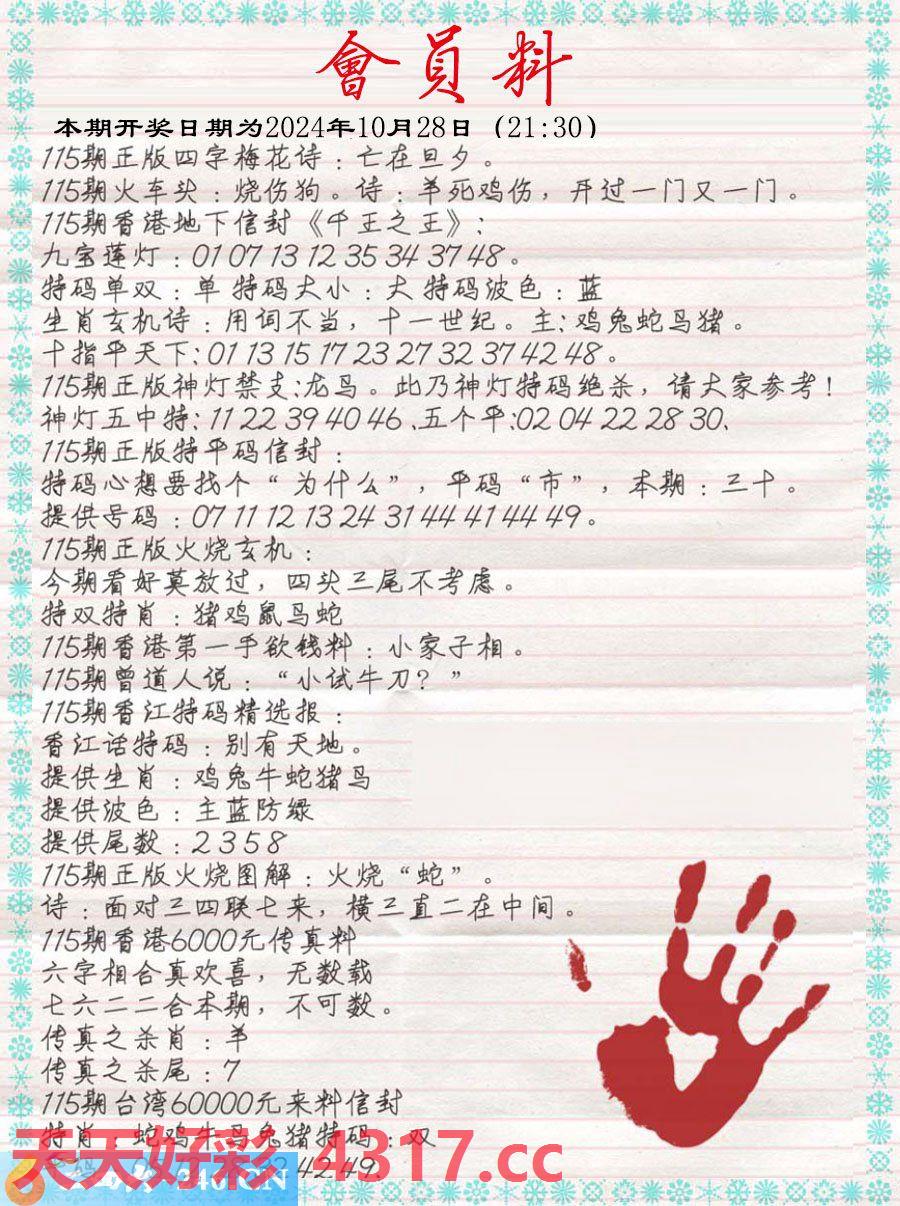 會員料
本期开奖日期为2024年10月28日（21:30）
115期正版四字梅花诗：亡在旦夕。
115期火车头：烧伤狗。诗：羊死鸡伤，开过一门又一门。
115期香港地下信封《千王之王》：
九宝莲灯：01 07 13 12 35 34 37 48。
特码单双：单 特码大小：大 特码波色：蓝
生肖玄机诗：用词不当，十一世纪。主：鸡兔蛇马猪。
十指平天下：01 13 15 17 23 27 32 37 42 48。
115期正版神灯禁支：龙马。此乃神灯特码绝杀，请大家参考！
神灯五中特：11 22 39 40 46、五个平：02 04 22 28 30、
115期正版特平码信封：
特码心想要找个“为什么”，平码“市”，本期：三十。
提供号码：07 11 12 13 24 31 44 41 44 49。
115期正版火烧玄机：
今期看好莫放过，四头三尾不考虑。
特双特肖：猪鸡鼠马蛇
115期香港第一手欲钱料：小家子相。
115期曾道人说：“小试牛刀？”
115期香江特码精选报：
香江话特码：别有天地。
提供生肖：鸡兔牛蛇猪马
提供波色：主蓝防绿
提供尾数：2 3 5 8
115期正版火烧图解：火烧“蛇”。
诗：面对三四联七来，横三直二在中间。
115期香港6000元传真料
六字相合真欢喜，无数载
七六二二合本期，不可数。
传真之杀肖：羊
传真之杀尾：7
115期台湾60000元来料信封
特肖：蛇鸡牛马兔猪特码：双
天天好彩 4317.cc
42 49.